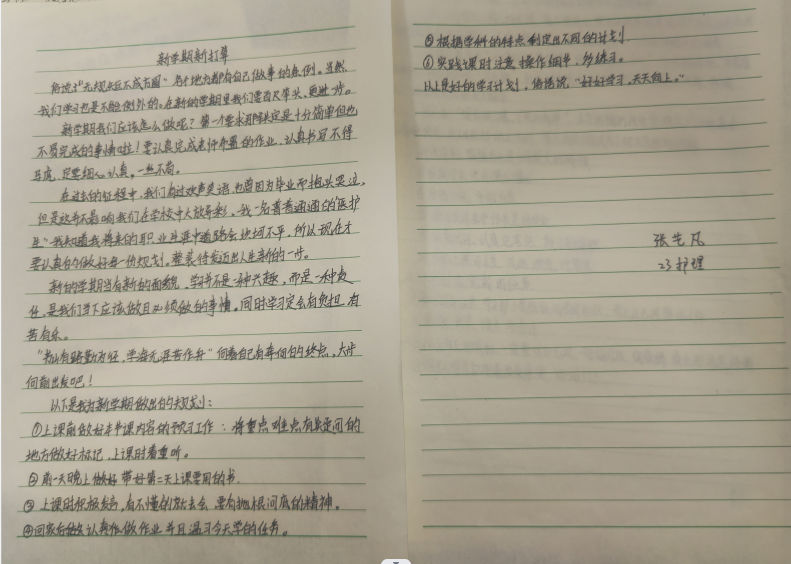 新学期新打算
俗说"无规矩不成方圆"各个地方都有自己做事的条例。当然
我们学习也是不能例外的。在新的学期里我们要百尺竿头，更进一步。
新学期我们应该怎么做呢？第一个要求可能是十分简单但也
不易完成的事情啦！要认真完成老师布置的作业，认真书写不得
马虎，定要细心认真，一丝不苟。
在过去的征程中，我们有过欢声笑语，也曾因为毕业而抱头哭泣，
但是这并不影响我们在学校中大放异彩。我一名普普通通的医护
生"我知道我将来的职业生涯中道路会坎坷不平，所以现在才
要认真的做好每一份规划，整装待发迈出人生新的一步。
新的学期当有新的面貌，学习并不是一种兴趣，而是一种责
任，是我们当下应该做且必须做的事情。同时学习定会有负担，有
苦有乐。
"书山有路勤为径，学海无涯苦作舟"向着自己有奔向的终点，大步
向前出发吧！
以下是我为新学期做出的规划：
①上课前做好本节课内容的预习工作：将重点难点有疑问的
地方做好标记，上课时着重听。
②前一天晚上做好带好第二天上课要用的书.
③上课时积极发言，有不懂的放去会 要有抛根问底的精神。
④回家后认真做作业并且温习今天学的任务。
⑤根据学科的特点制定出不同的计划
⑥实践课时注意操作细节，多练习。
以上是好的学习计划，俗话说"好好学习，天天向上。"
张先凡
23护理